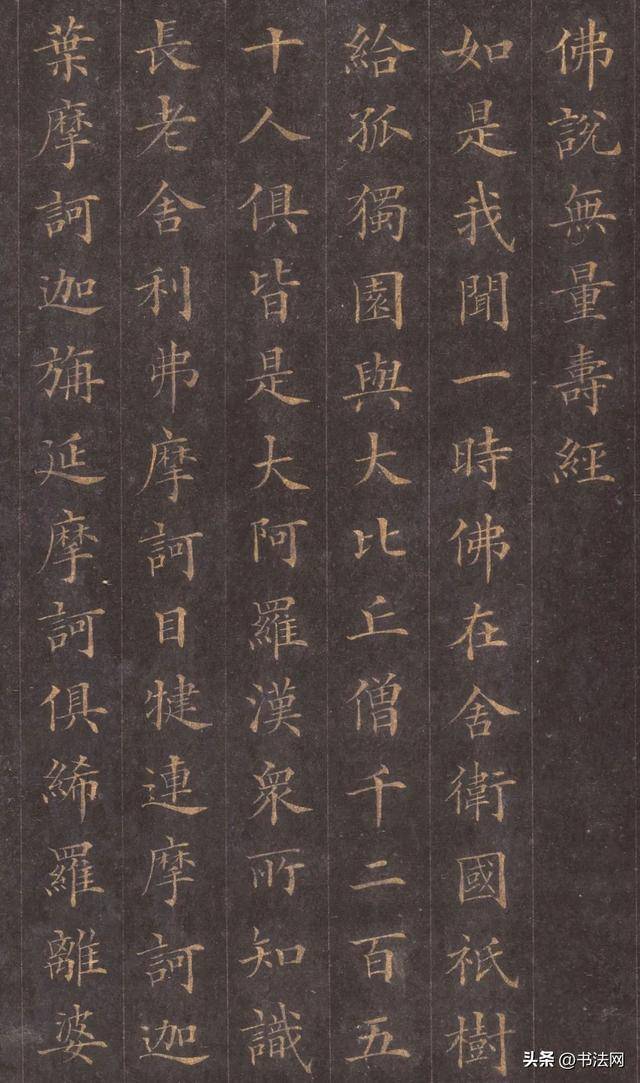 佛說無量壽經
如是我聞一時佛在舍衛國祇樹
給孤獨園與大比丘僧千二百五
十人俱皆是大阿羅漢衆所知識
長老舍利弗摩訶目犍連摩訶迦
葉摩訶迦旃延摩訶俱絺羅離婆
头条 @书法网